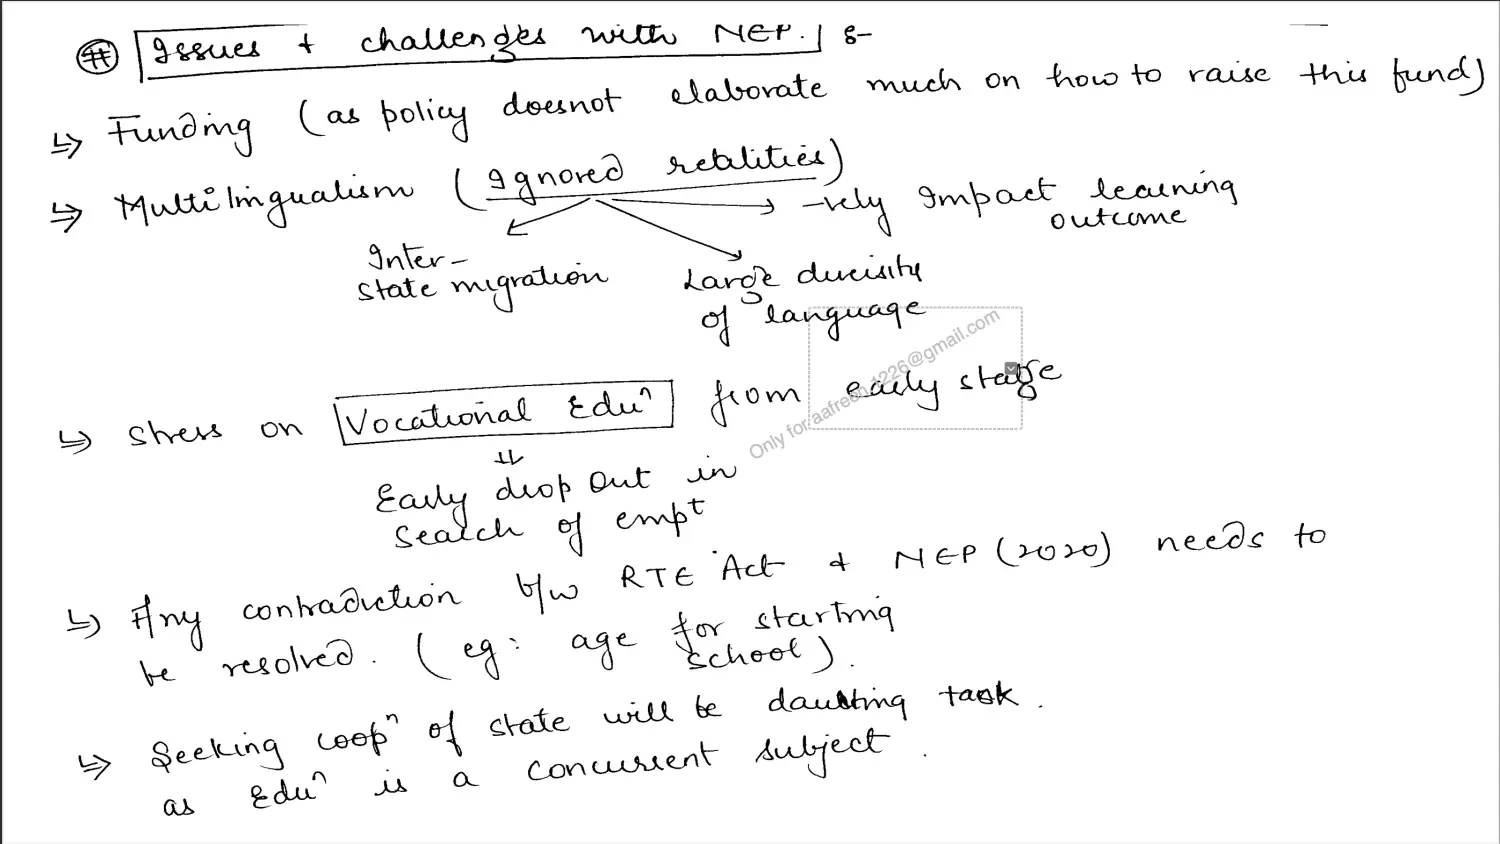 # Issues + challenges with NEP. :-
↳ Funding (as policy doesnot elaborate much on how to raise this fund)
↳ Multilingualism (Ignored realities)
→ -vely Impact learning outcome
Inter-state migration
Large diversity of language
↳ Stress on Vocational Eduⁿ from early stage
⇓
Early drop out in
search of empᵗ
↳ Any contradiction b/w RTE Act & NEP (2020) needs to
be resolved. (eg: age for starting school).
↳ Seeking coopⁿ of state will be daunting task.
as Eduⁿ is a concurrent subject.
Only for aafreen.1226@gmail.com